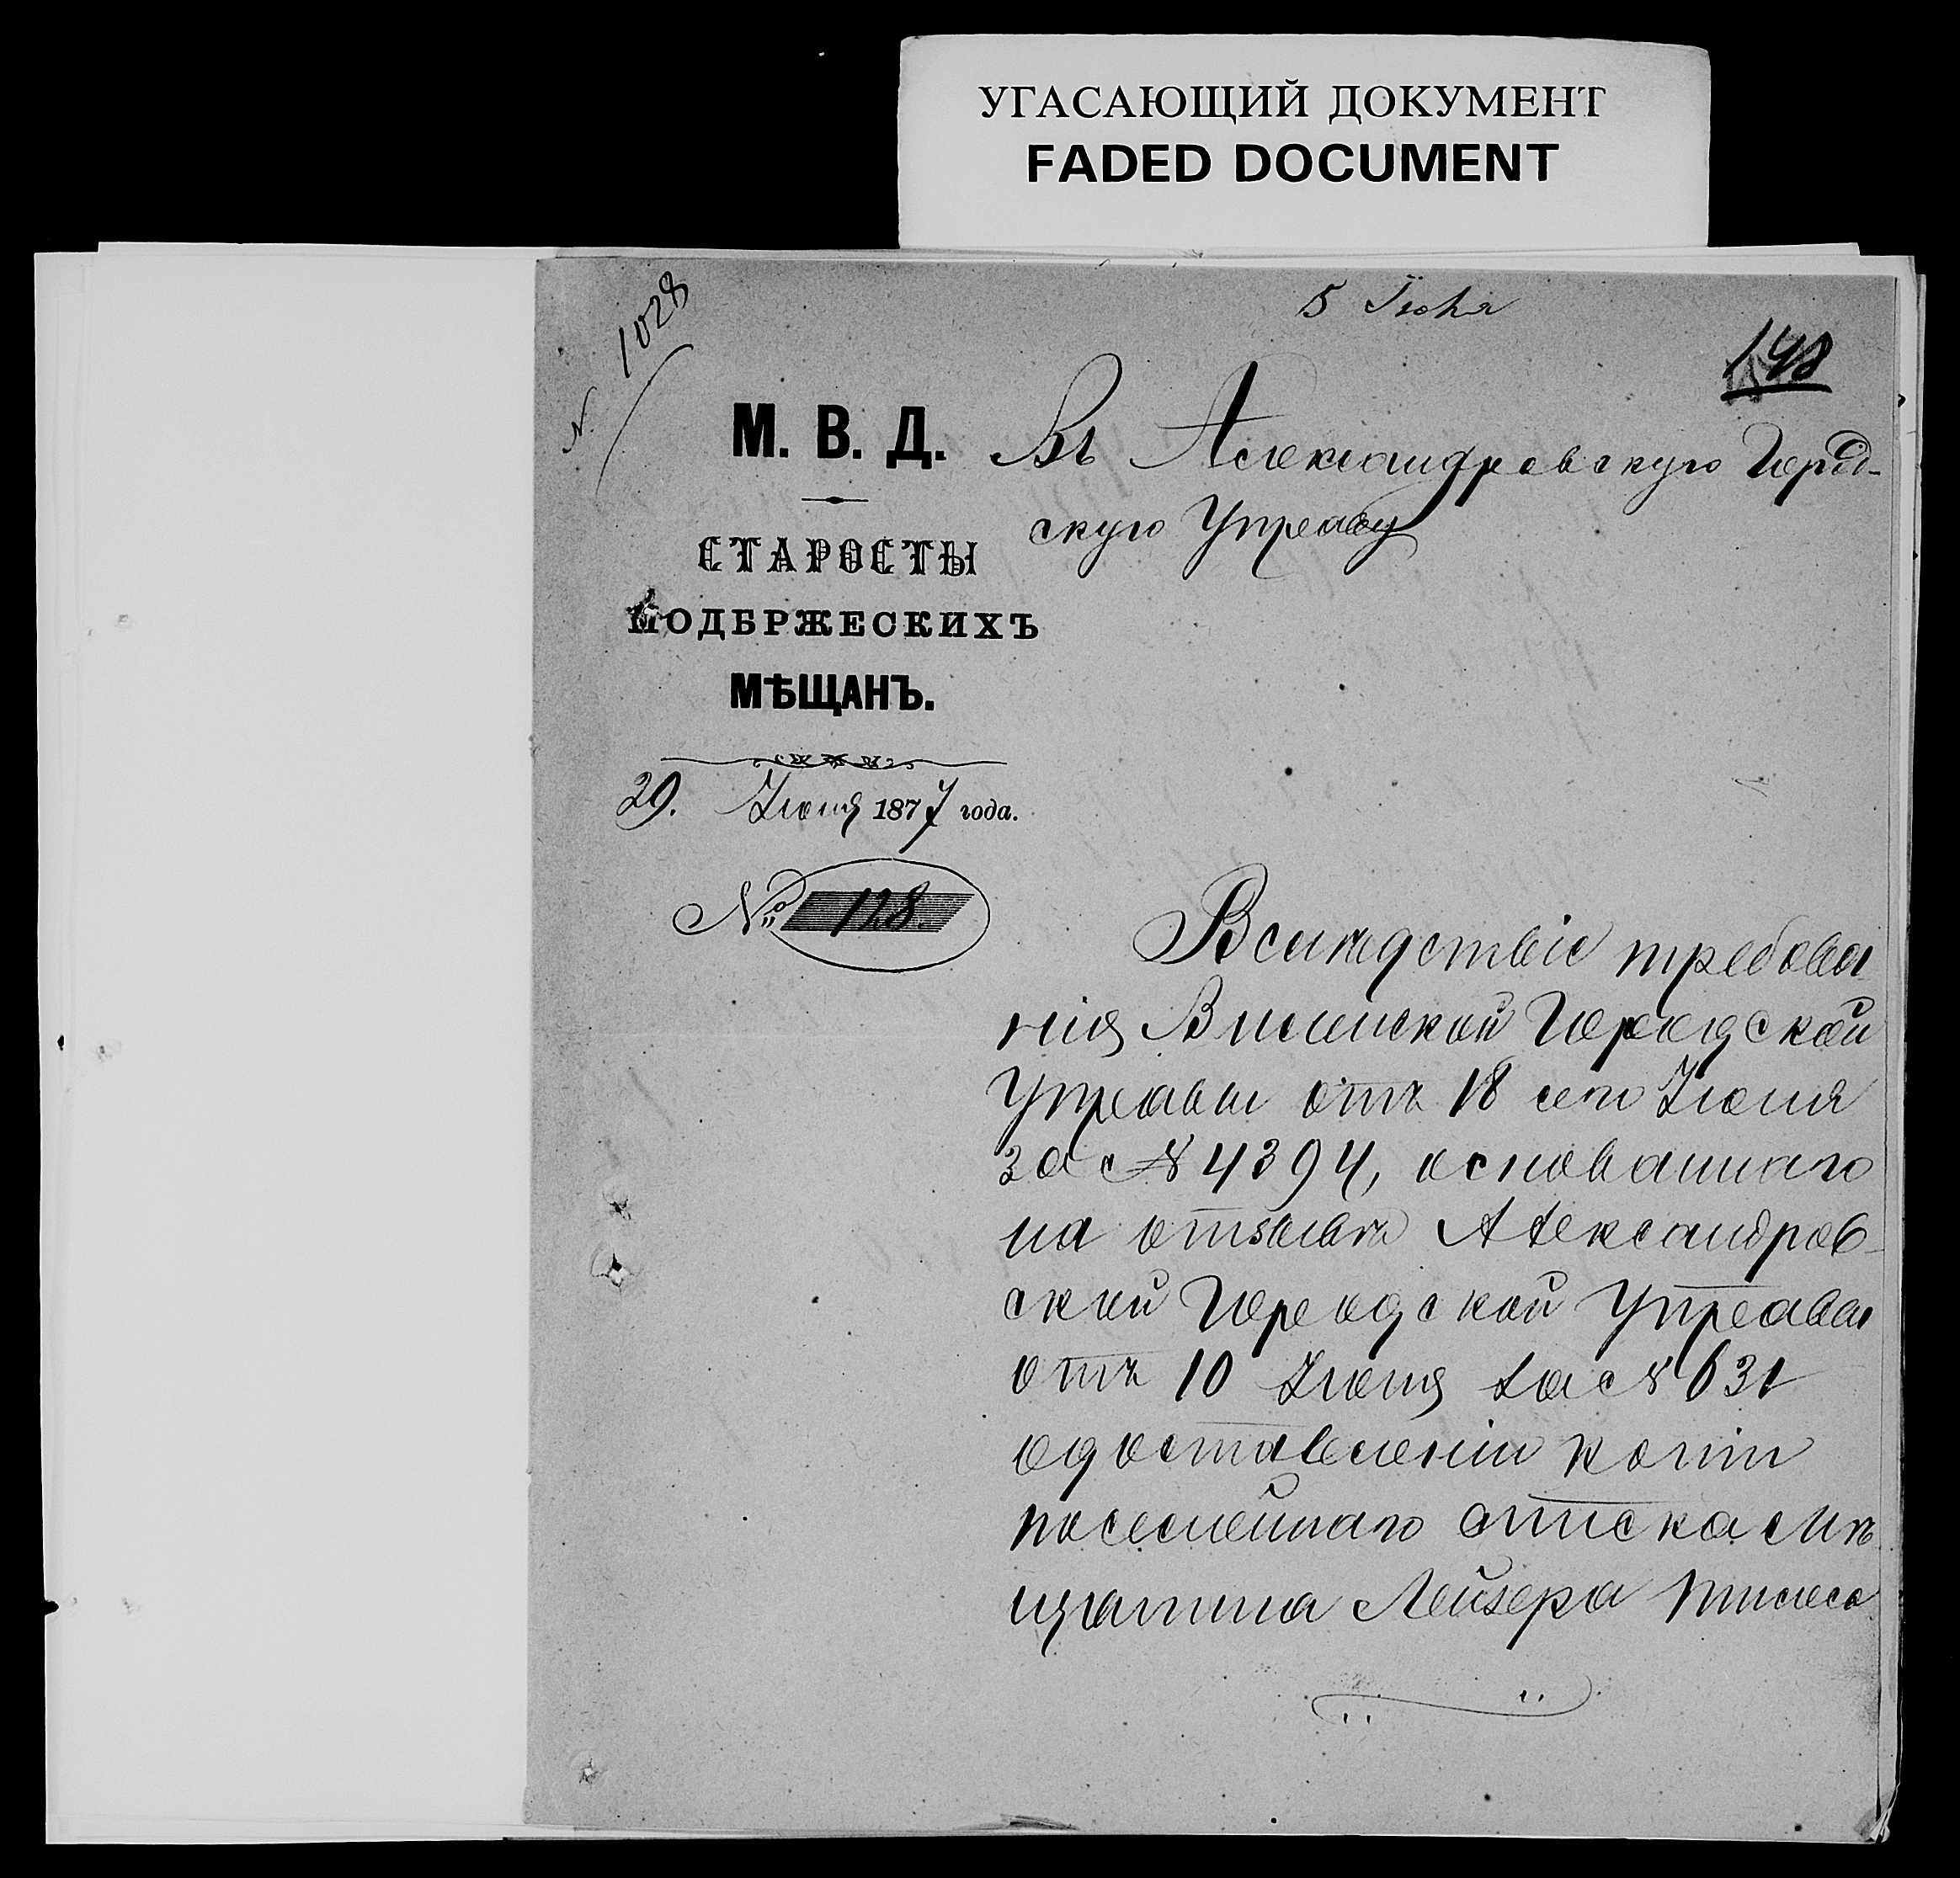 УГАСАЮЩИЙ ДОКУМЕНТ
FADED DOCUMENT
N. 1028
148
М. В. Д.
СТАРОСТЫ
ПОДБРЖЕСКИХЪ
МѢЩАНЪ.
29. Іюня 1877 года.
№ 128.
Въ Александровскую Город-
скую Управу
Вслѣдствіе требова
нія Виленской Городской
Управы отъ 18 сего Іюня
за № 4394, основаннаго
на отзывѣ Александров-
ской Городской Управы
отъ 10 Іюня за № 631
о доставленіи копіи
посемейнаго списка мѣ
щанина Лейзера